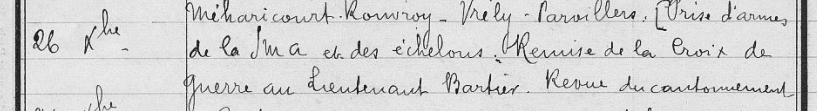 Méharicourt-Rouvroy - Vrély - Parvillers. [Prise d'armes
26 Xbre de la SMA et des échelons. Remise de la Croix de
guerre au Lieutenant Bartier. Revue du cantonnement